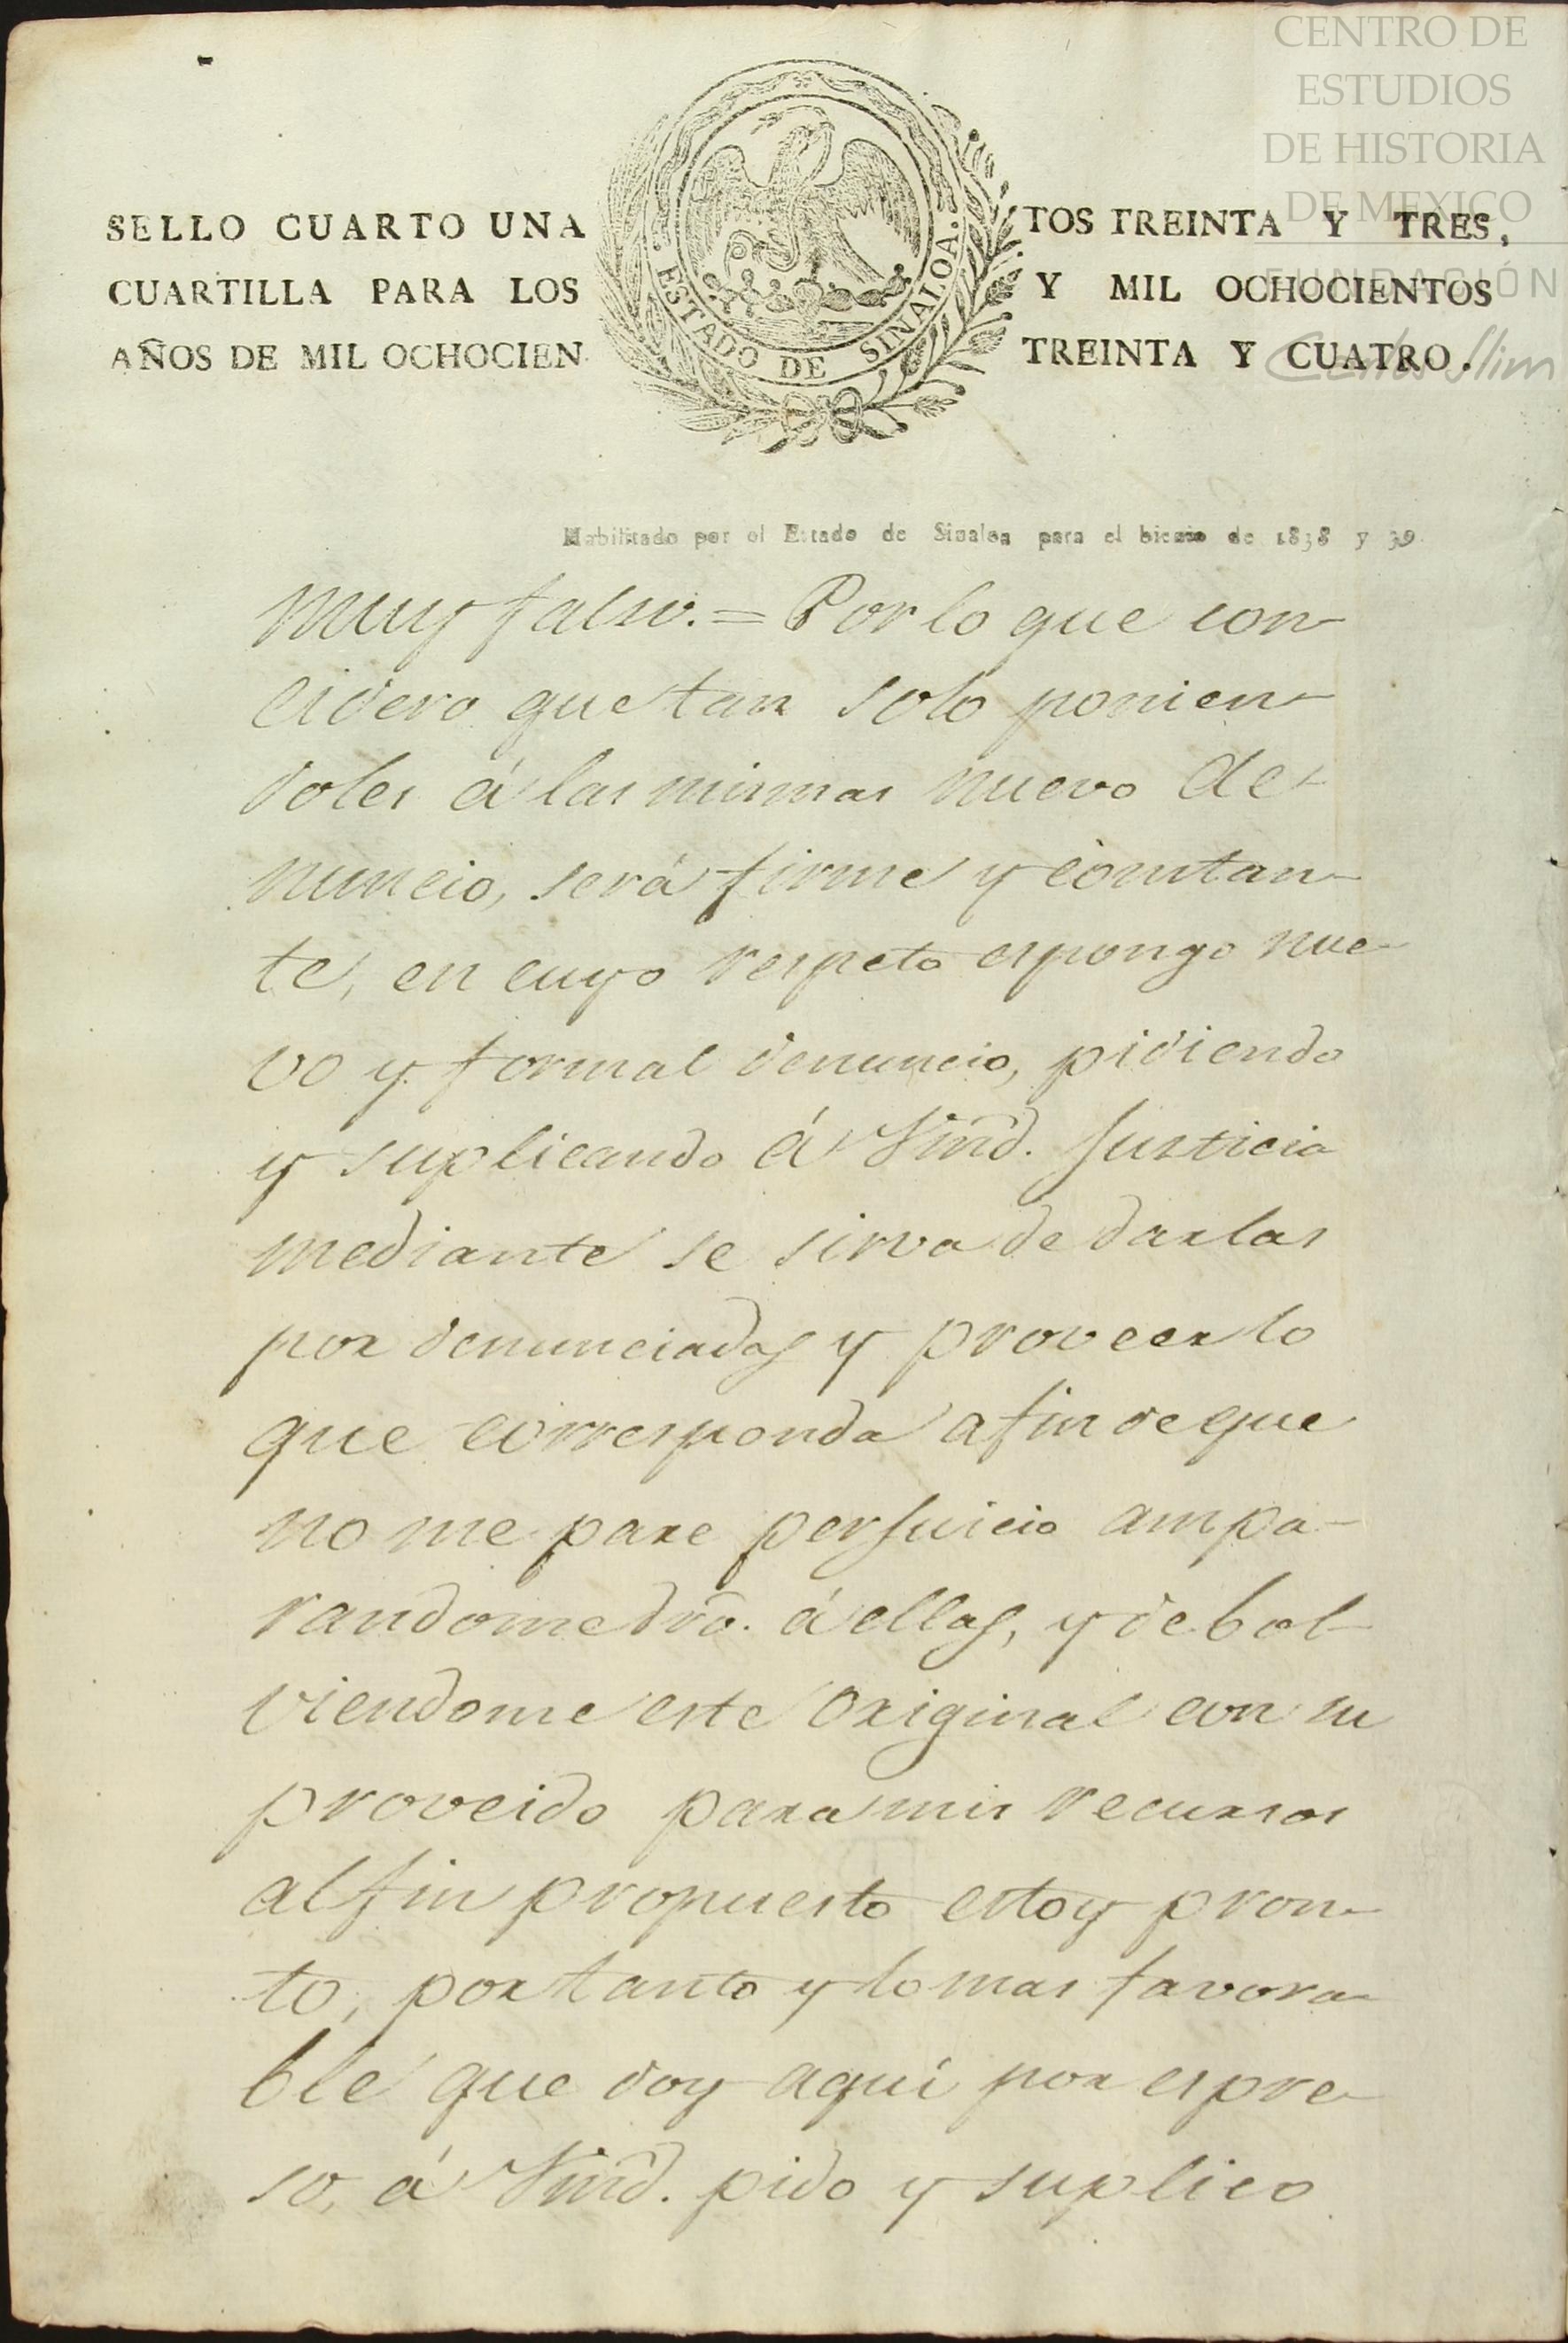 CENTRO DE
ESTUDIOS
DE HISTORIA
DE MEXICO
FUNDACIÓN
Carlos Slim
SELLO CUARTO UNA
CUARTILLA PARA LOS
AÑOS DE MIL OCHOCIEN
ESTADO DE SINALOA.
TOS TREINTA Y TRES,
Y MIL OCHOCIENTOS
TREINTA Y CUATRO.
Habilitado por el Estado de Sinaloa para el bienio de 1838 y 39.
muy falso. = Por lo que con-
cidero que tan solo ponien-
doles á las mismas nuevo de-
nuncio, será firme y constan-
te, en cuyo respeto espongo nue-
vo y formal denuncio, pidiendo
y suplicando á Vmd. Justicia
mediante se sirva de darlas
por denunciadas y proveer lo
que corresponda a fin de que
no me pare perjuicio ampa-
randome dro. á ellas, y debol-
viendome este original con su
proveido para mis recursos
al fin propuesto estoy pron-
to, por tanto y lo mas favora-
ble que doy aquí por espre-
so, á Vmd. pido y suplico